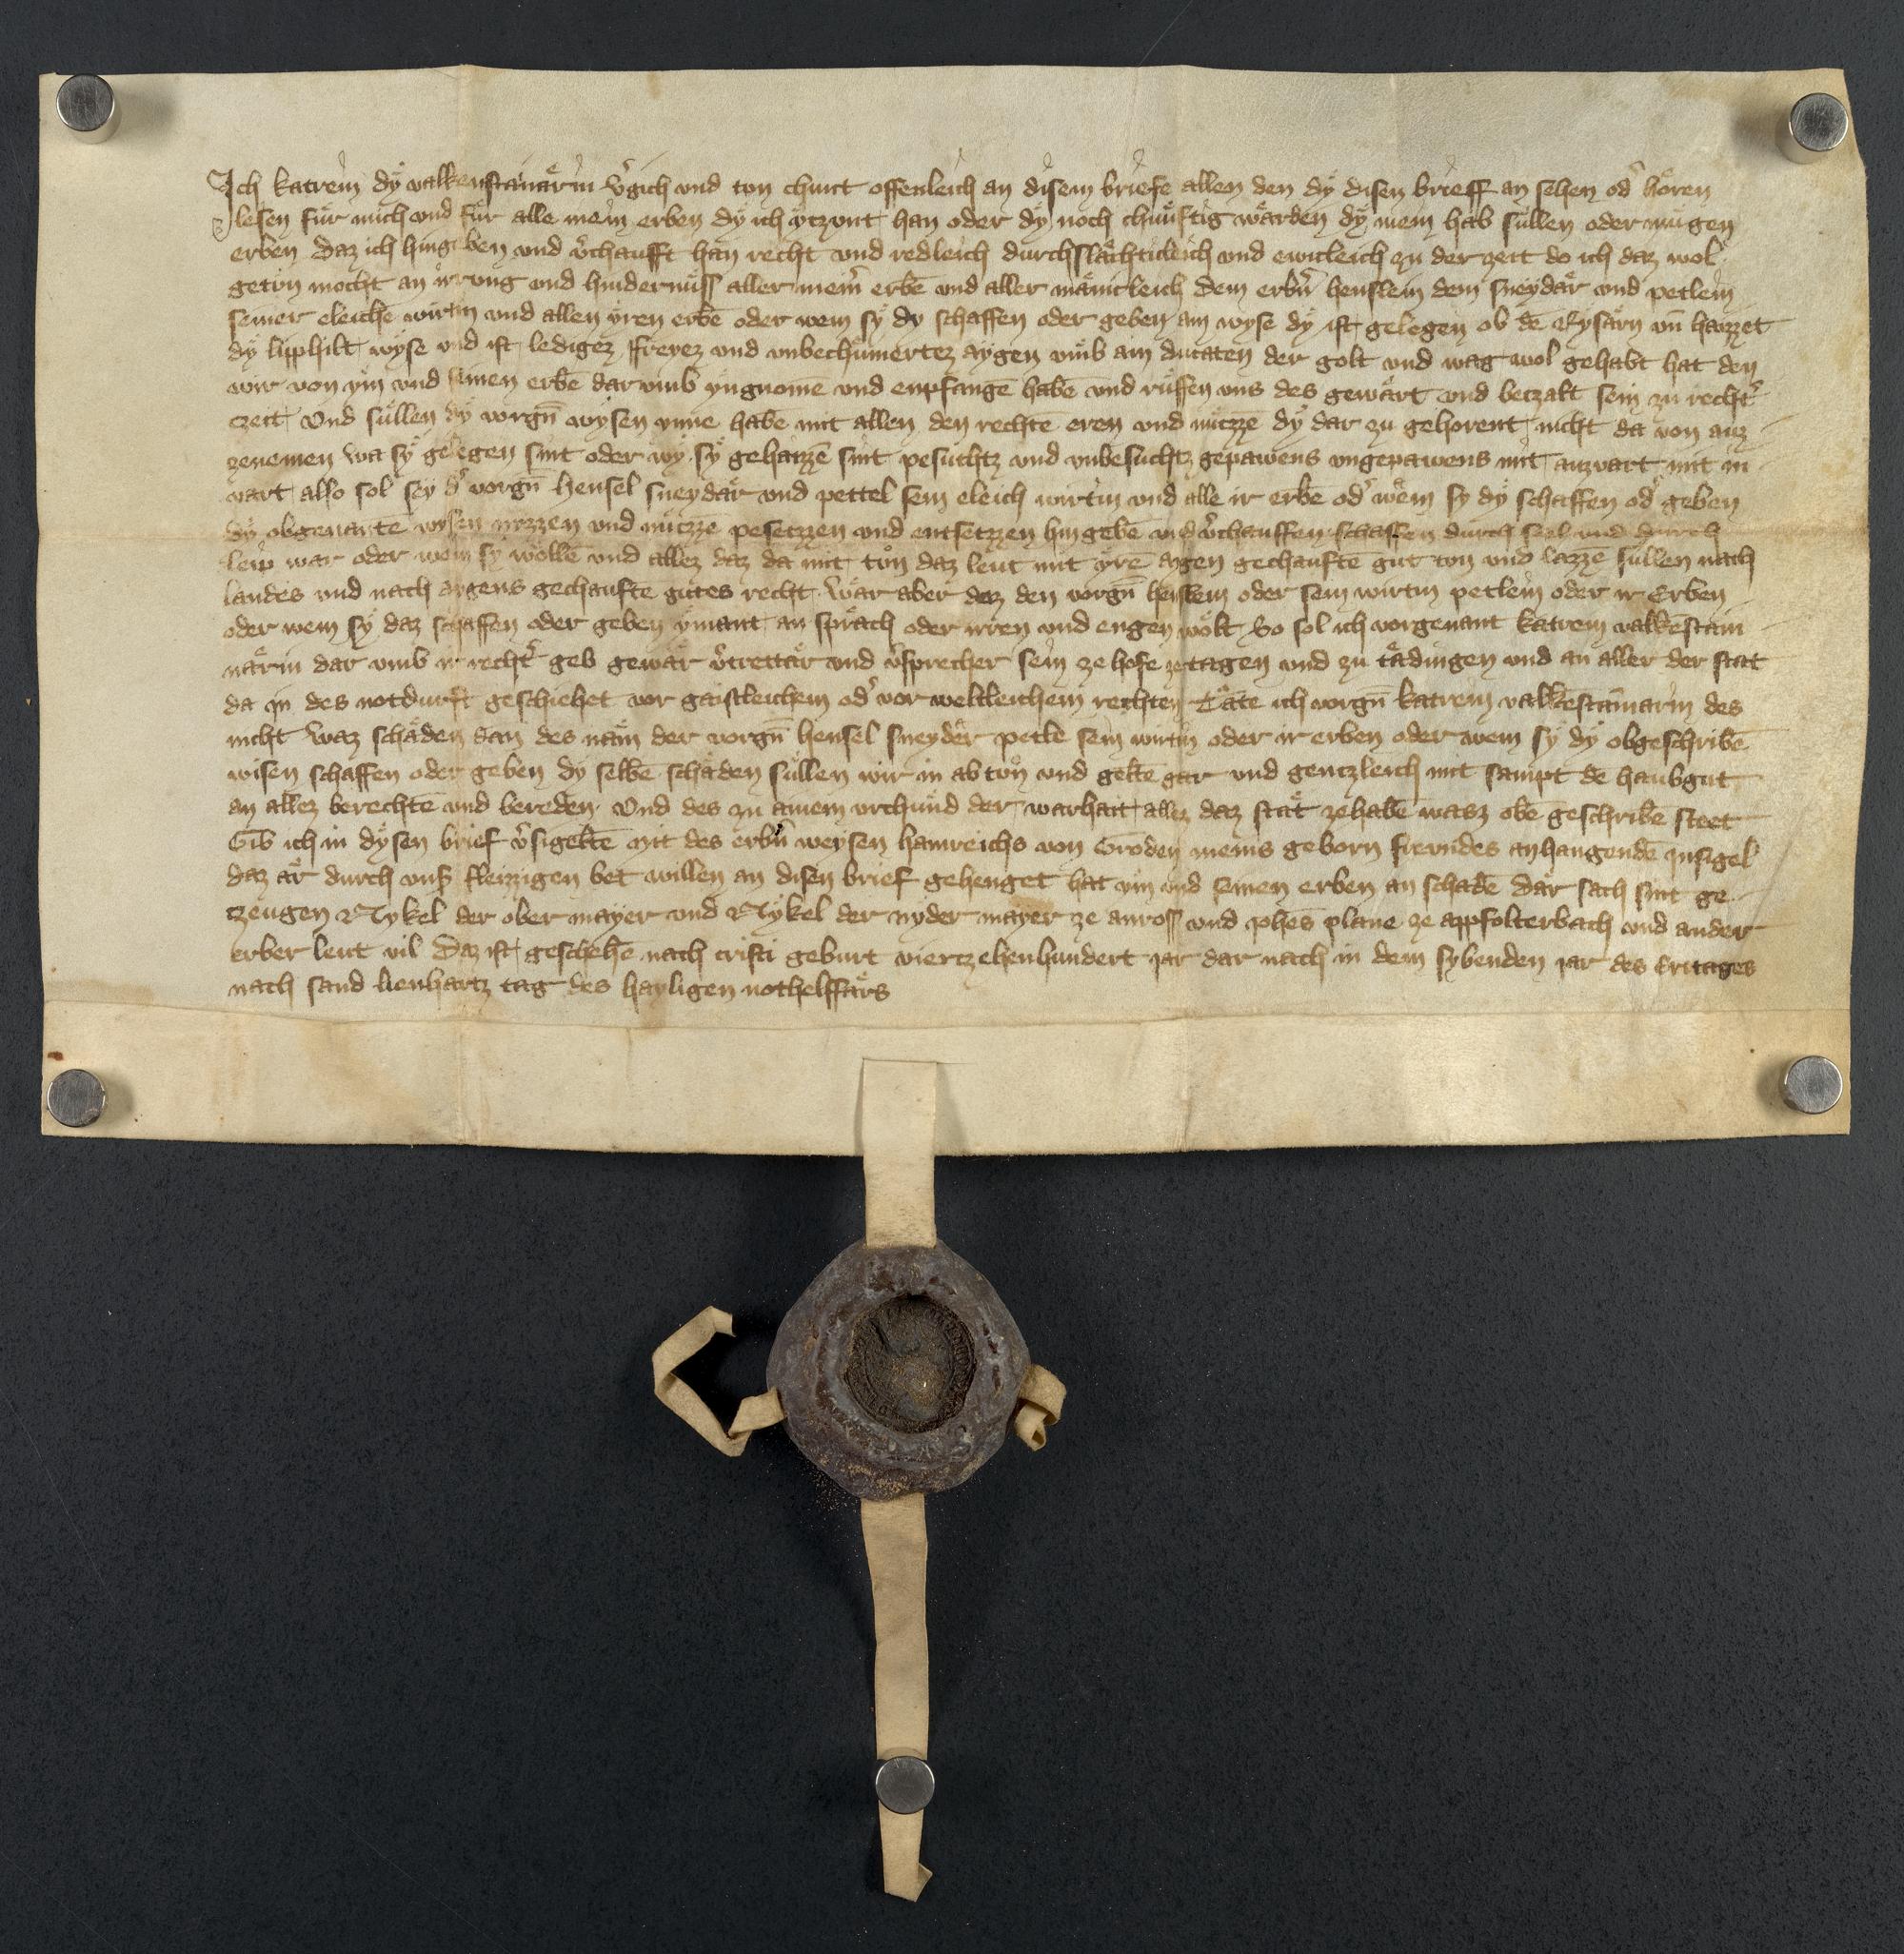 Ich katrein dÿ valkenstainärin v̓gich und ton chunt offenleich an disem briefe allen den dÿ disen brieff an sehen od̓ hören
lesen für mich und für alle mein erben dÿ ich ÿtzunt han oder dÿ noch chünftig wärden dÿ mein hab süllen oder mügen
erben Daz ich hingeben und v̓chaufft han recht und redleich durchslächticleich und ewicleich zu der zeit do ich daz wol
geton mocht an irrung und hindernüss aller mein̓ erbē und aller mänicleich dem erbn̓ henslein dem sneydär und petlein
seiner eleichē wirtin und allen ÿren erbē oder wem sÿ dy schaffen oder geben ain wyse dÿ ist gelegen ob dē Rysärn un̄ haizzet
dÿ lipphilt wÿse und ist ledigez freyez und unbechümertez aÿgen umb ain ducaten der golt und wag wol gehabt hat den
wir von ÿm und seinen erbē dar umb ÿngnomē und enpfangē habē und rüffen uns des gewärt und betzalt sein zu recht̓
czeit Und süllen dÿ vorgn̄ wysen ynne habē mit allen den rechtē eren und nützzē dÿ dar zu gehorent nicht da von auz
zenemen wa sÿ gelegen sint oder wÿ sÿ gehaizzē sint pesuchtz und unbesuchtz gepawens ungepawens mit auzvart mit in
vart also sol sey d̓ vorgn̄ Hensel sneydär und pettel sein eleich wirtin und alle ir erbē od̓ wem sy dÿ schaffen od̓ geben
dÿ obgenantē wysen nyzzen und nützzē pesetzzen und entsetzzen hin gebē und v̓chauffen schaffen durch sel und durch
leip war oder wem sÿ wollē und allez daz da mit ton daz leut mit ÿrē aygen gechauftē gut ton und lazzē süllen nach
landes und nach aygens gechauftē gutes recht Wär aber daz den vorgn̄ henslein oder sein wirtin petlein oder ir Erben
oder wem sÿ daz schaffen oder geben ÿmant an sprach oder irren und engen wolt So sol ich vorgenant katrein valkēstain
närin dar umb ir recht̓ geb gewär v̓trettär und v̓sprecher sein ze hofe ze tagen und zu tädingen und an aller der stat
da in des notdurft geschiehet vor gaistleichem od̓ vor weltleichem rechten Täte ich vorgn̄ katrein valkēstainnarin des
nicht Waz schäden dan des näm der vorgn̄ hensel sneyder petlē sein wirtin oder ir erben oder wem sÿ dÿ obgeschribē
wisen schaffen oder geben dy selbē schäden süllen wir in ab ton und geltē gar und gentzleich mit sampt dē haubgut
an allez berechtē und bereden Und des zu ainem urchünd der warhait allez daz stät zehabē wasz obē geschribē steet
Gib ich in dÿsen brief v̓sigeltē mit des erbn̓ weysen hainreichs von Gröden meins geborn freundes anhangendē insigel
daz är durch uns̓ fleizzigen bet willen an disen brief gehenget hat im und seinen erben an schadē Där sach sint ge
czeugen Nykel der ober mayer und Nÿkel der nyder mayer ze anross und johes plane ze appfolterbach und ander
erber leut vil Daz ist geschehē nach cristi geburt viertzehenhundert jar dar nach in dem sybenden jar des Eritages
nach sand lienhartz tag des hayligen nothelffärs